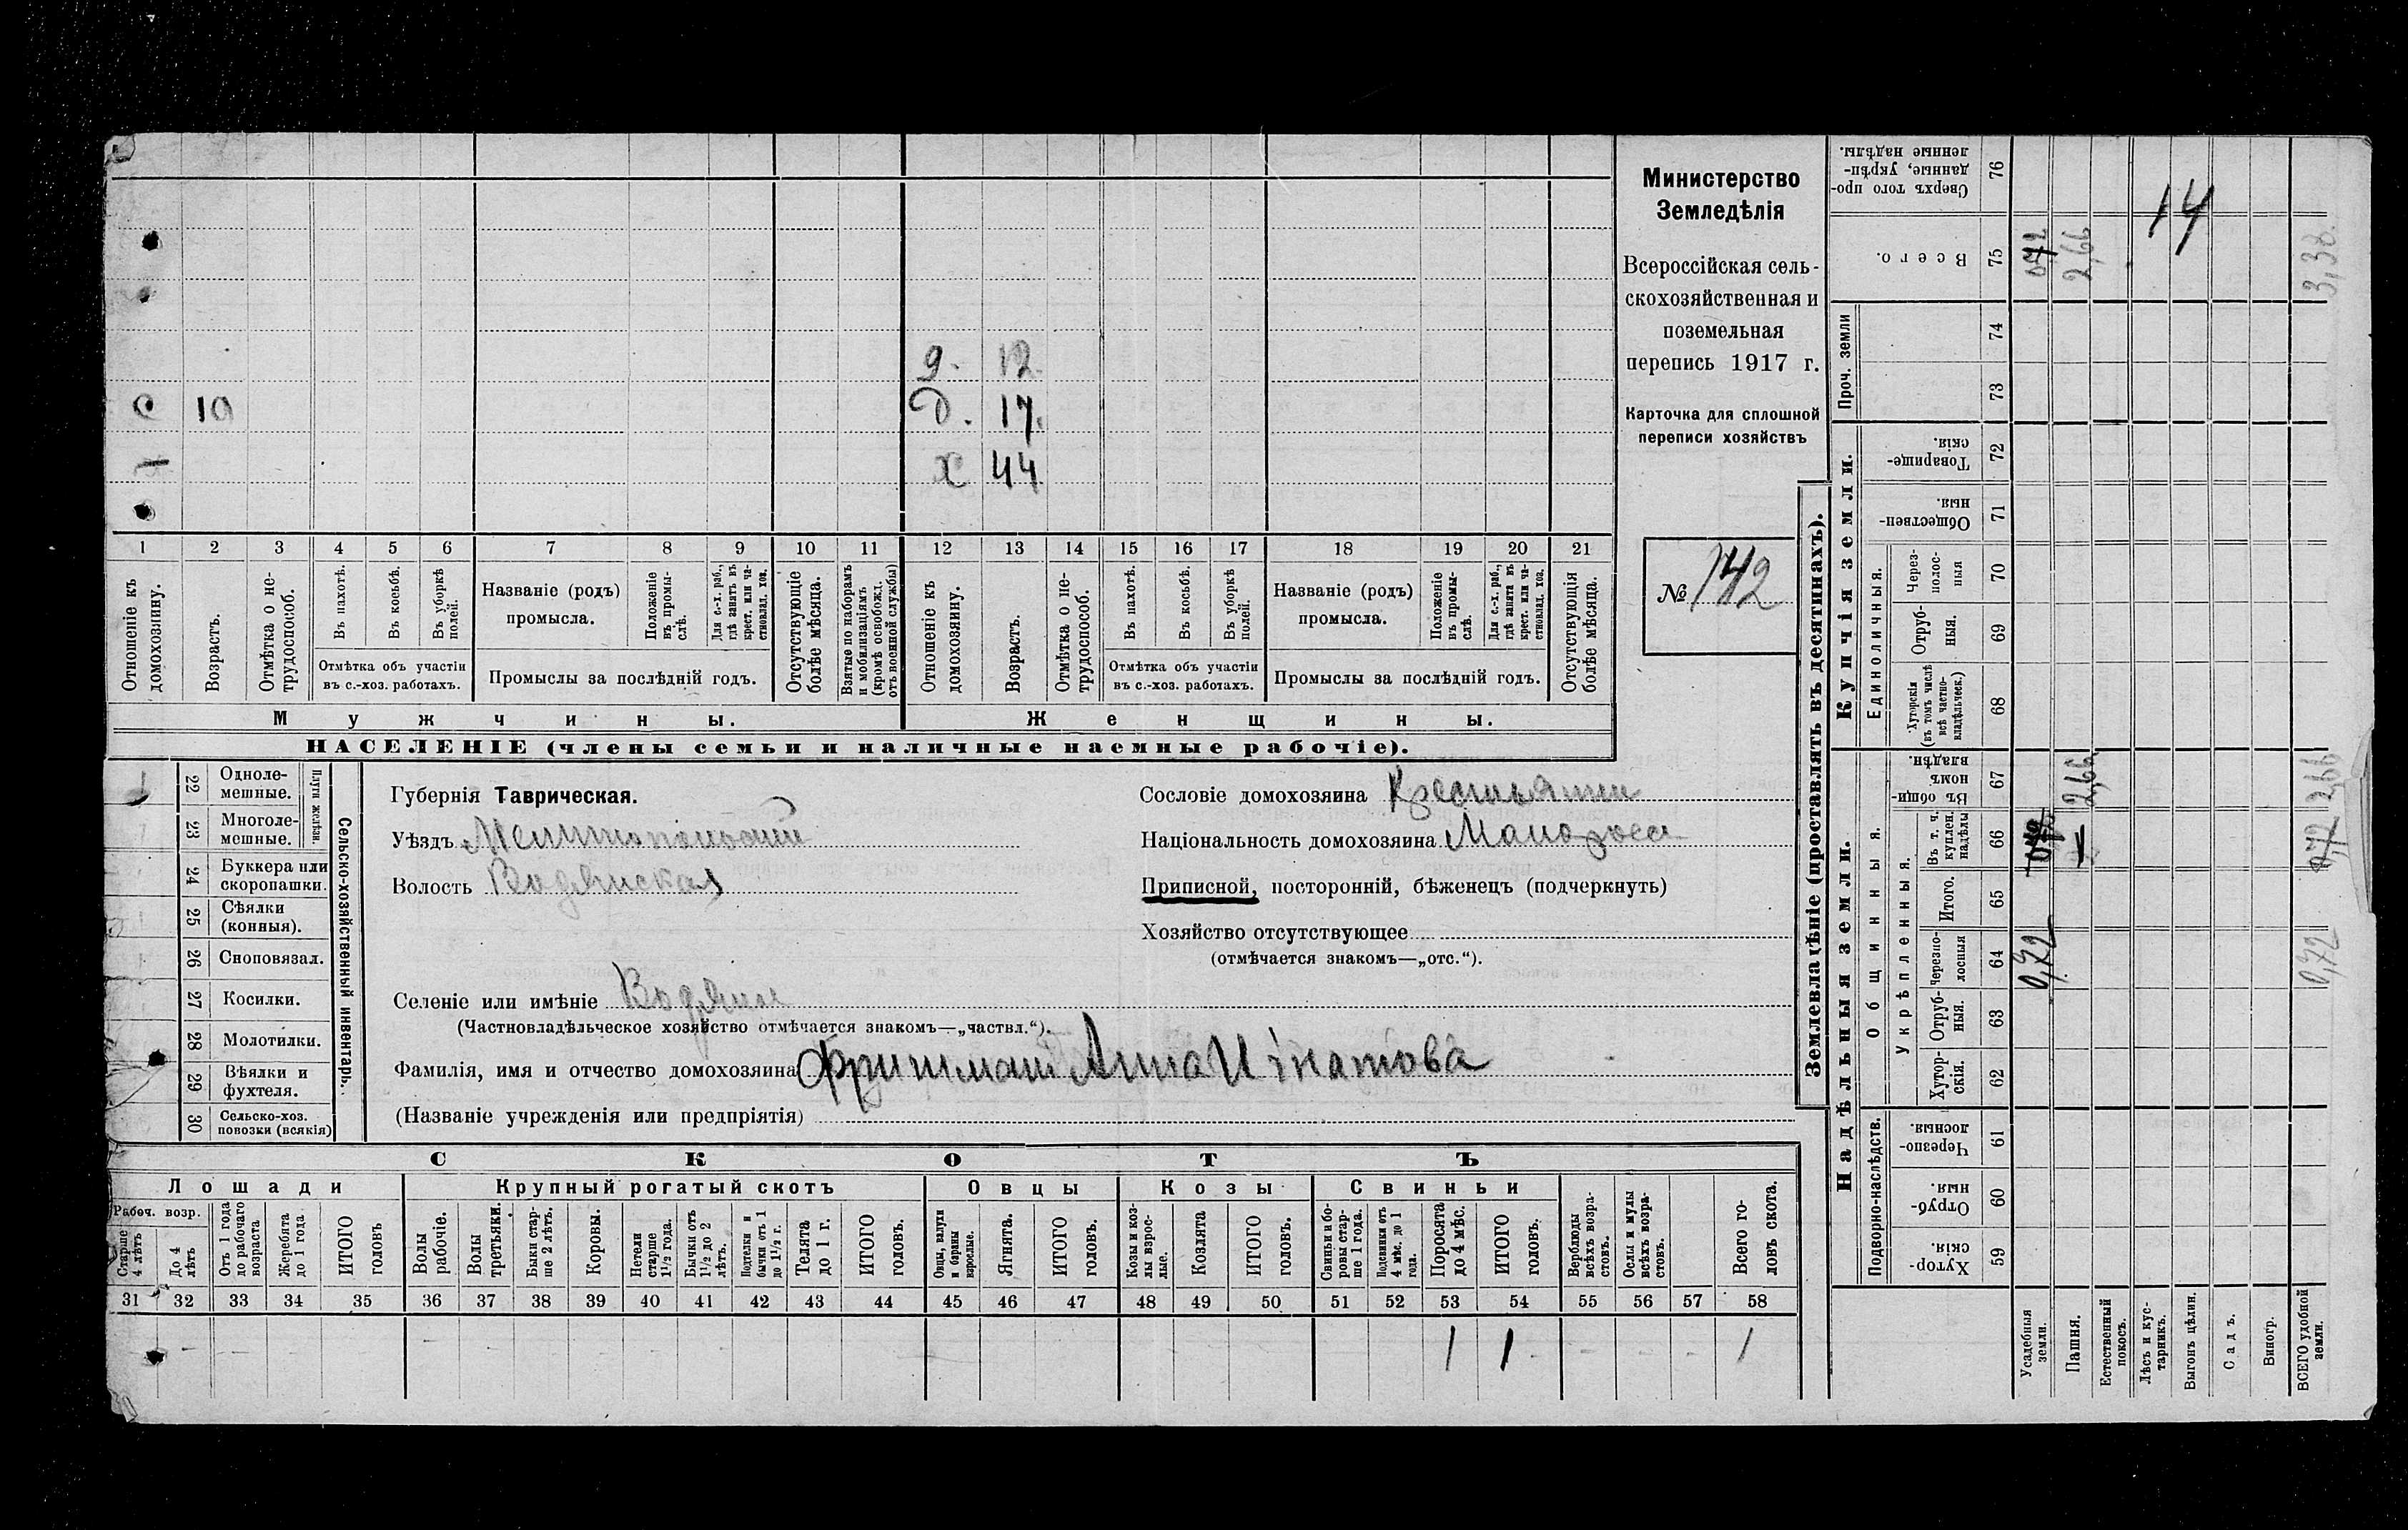 Министерство
Земледѣлія
Всероссійская сель-
скохозяйственная и
поземельная
перепись 1917 г.
Карточка для сплошной
переписи хозяйствъ
№ 142
д. 12
с 10 д. 17.
х 44
1 2 3 4 5 6 7 8 9 10 11 12 13 14 15 16 17 18 19 20 21
Отношеніе къ домохозяину.
Возрастъ.
Отмѣтка о не-трудоспособ.
Въ пахотѣ.
Въ косьбѣ.
Въ уборкѣ полей.
Отмѣтка объ участіи
въ с.-хоз. работахъ.
Названіе (родъ)
промысла.
Положеніе въ промы-слѣ.
Для с.-х. раб., гдѣ занятъ въ крест. или ча-стновлад. хоз.
Промыслы за послѣдній годъ.
Отсутствующіе болѣе мѣсяца.
Взятые по наборамъ и мобилизаціямъ (кромѣ освобожд. отъ военной службы)
Отношеніе къ домохозяину.
Возрастъ.
Отмѣтка о не-трудоспособ.
Въ пахотѣ.
Въ косьбѣ.
Въ уборкѣ полей.
Отмѣтка объ участіи
въ с.-хоз. работахъ.
Названіе (родъ)
промысла.
Положеніе въ промы-слѣ.
Для с.-х. раб., гдѣ занята въ крест. или ча-стновлад. хоз.
Промыслы за послѣдній годъ.
Отсутствующія болѣе мѣсяца.
Мужчины.
Женщины.
НАСЕЛЕНІЕ (члены семьи и наличные наемные рабочіе).
Сельско-хозяйственный инвентарь.
Плуги желѣзн.
22 Одноле-мешные.
23 Многоле-мешные.
24 Буккера или скоропашки.
25 Сѣялки (конныя).
26 Сноповязал.
27 Косилки.
28 Молотилки.
29 Вѣялки и фухтеля.
30 Сельско-хоз. повозки (всякія)
Губернія Таврическая.
Уѣздъ Мелитопольскій
Волость Водянская
Селеніе или имѣніе Водяное
(Частновладѣльческое хозяйство отмѣчается знакомъ—„частвл.“).
Фамилія, имя и отчество домохозяина Анна Игнатова
(Названіе учрежденія или предпріятія)
Сословіе домохозяина Крестьянин
Національность домохозяина Малоросс
Приписной, посторонній, бѣженецъ (подчеркнуть)
Хозяйство отсутствующее
(отмѣчается знакомъ—„отс.“).
СКОТЪ
Лошади
Крупный рогатый скотъ
Овцы
Козы
Свиньи
Рабоч. возр.
Старше 4 лѣтъ
До 4 лѣтъ
Отъ 1 года до рабочаго возраста
Жеребята до 1 года
ИТОГО головъ
Волы рабочіе.
Волы третьяки.
Быки стар-ше 2 лѣтъ.
Коровы.
Нетели старше 1½ года.
Бычки отъ 1½ до 2 лѣтъ.
Подтелки и бычки отъ 1 до 1½ г.
Телята до 1 г.
ИТОГО головъ.
Овцы, валухи и бараны взрослые.
Ягнята.
ИТОГО головъ.
Козы и коз-лы взрос-лые.
Козлята
ИТОГО головъ.
Свиньи и бо-ровы стар-ше 1 года.
Подсвинки отъ 4 мѣс. до 1 года.
Поросята до 4 мѣс.
ИТОГО головъ.
Верблюды всѣхъ возра-стовъ.
Ослы и мулы всѣхъ возра-стовъ.
Всего го-ловъ скота.
31 32 33 34 35 36 37 38 39 40 41 42 43 44 45 46 47 48 49 50 51 52 53 54 55 56 57 58
1 1 1
Землевладѣніе (проставлять въ десятинахъ).
Надѣльныя земли.
Купчія земли.
Проч. земли
Подворно-наслѣдств.
Общинныя.
Укрѣпленныя.
Единоличныя.
Хутор-скія. 59
Отруб-ныя. 60
Черезпо-лосныя. 61
Хутор-скія. 62
Отруб-ныя. 63
Черезпо-лосныя 64
Итого. 65
Въ т. ч. куплен. надѣлы 66
Въ общин-номъ владѣн. 67
Хуторскія (въ томъ числѣ всѣ частно-владѣльческ.) 68
Отруб-ныя. 69
Через-полос-ныя 70
Обществен-ныя. 71
Товарище-скія. 72
73
74
Всего. 75
Сверхъ того про-данные, укрѣп-ленные надѣлы. 76
Усадебныя земли. 0,72
Пашня. 2,66 2,66
Естественный покосъ.
Лѣсъ и кус-тарникъ.
Выгонъ цѣлин.
Садъ.
Виногр.
ВСЕГО удобной земли. 0,72 2,66 3,38.
14